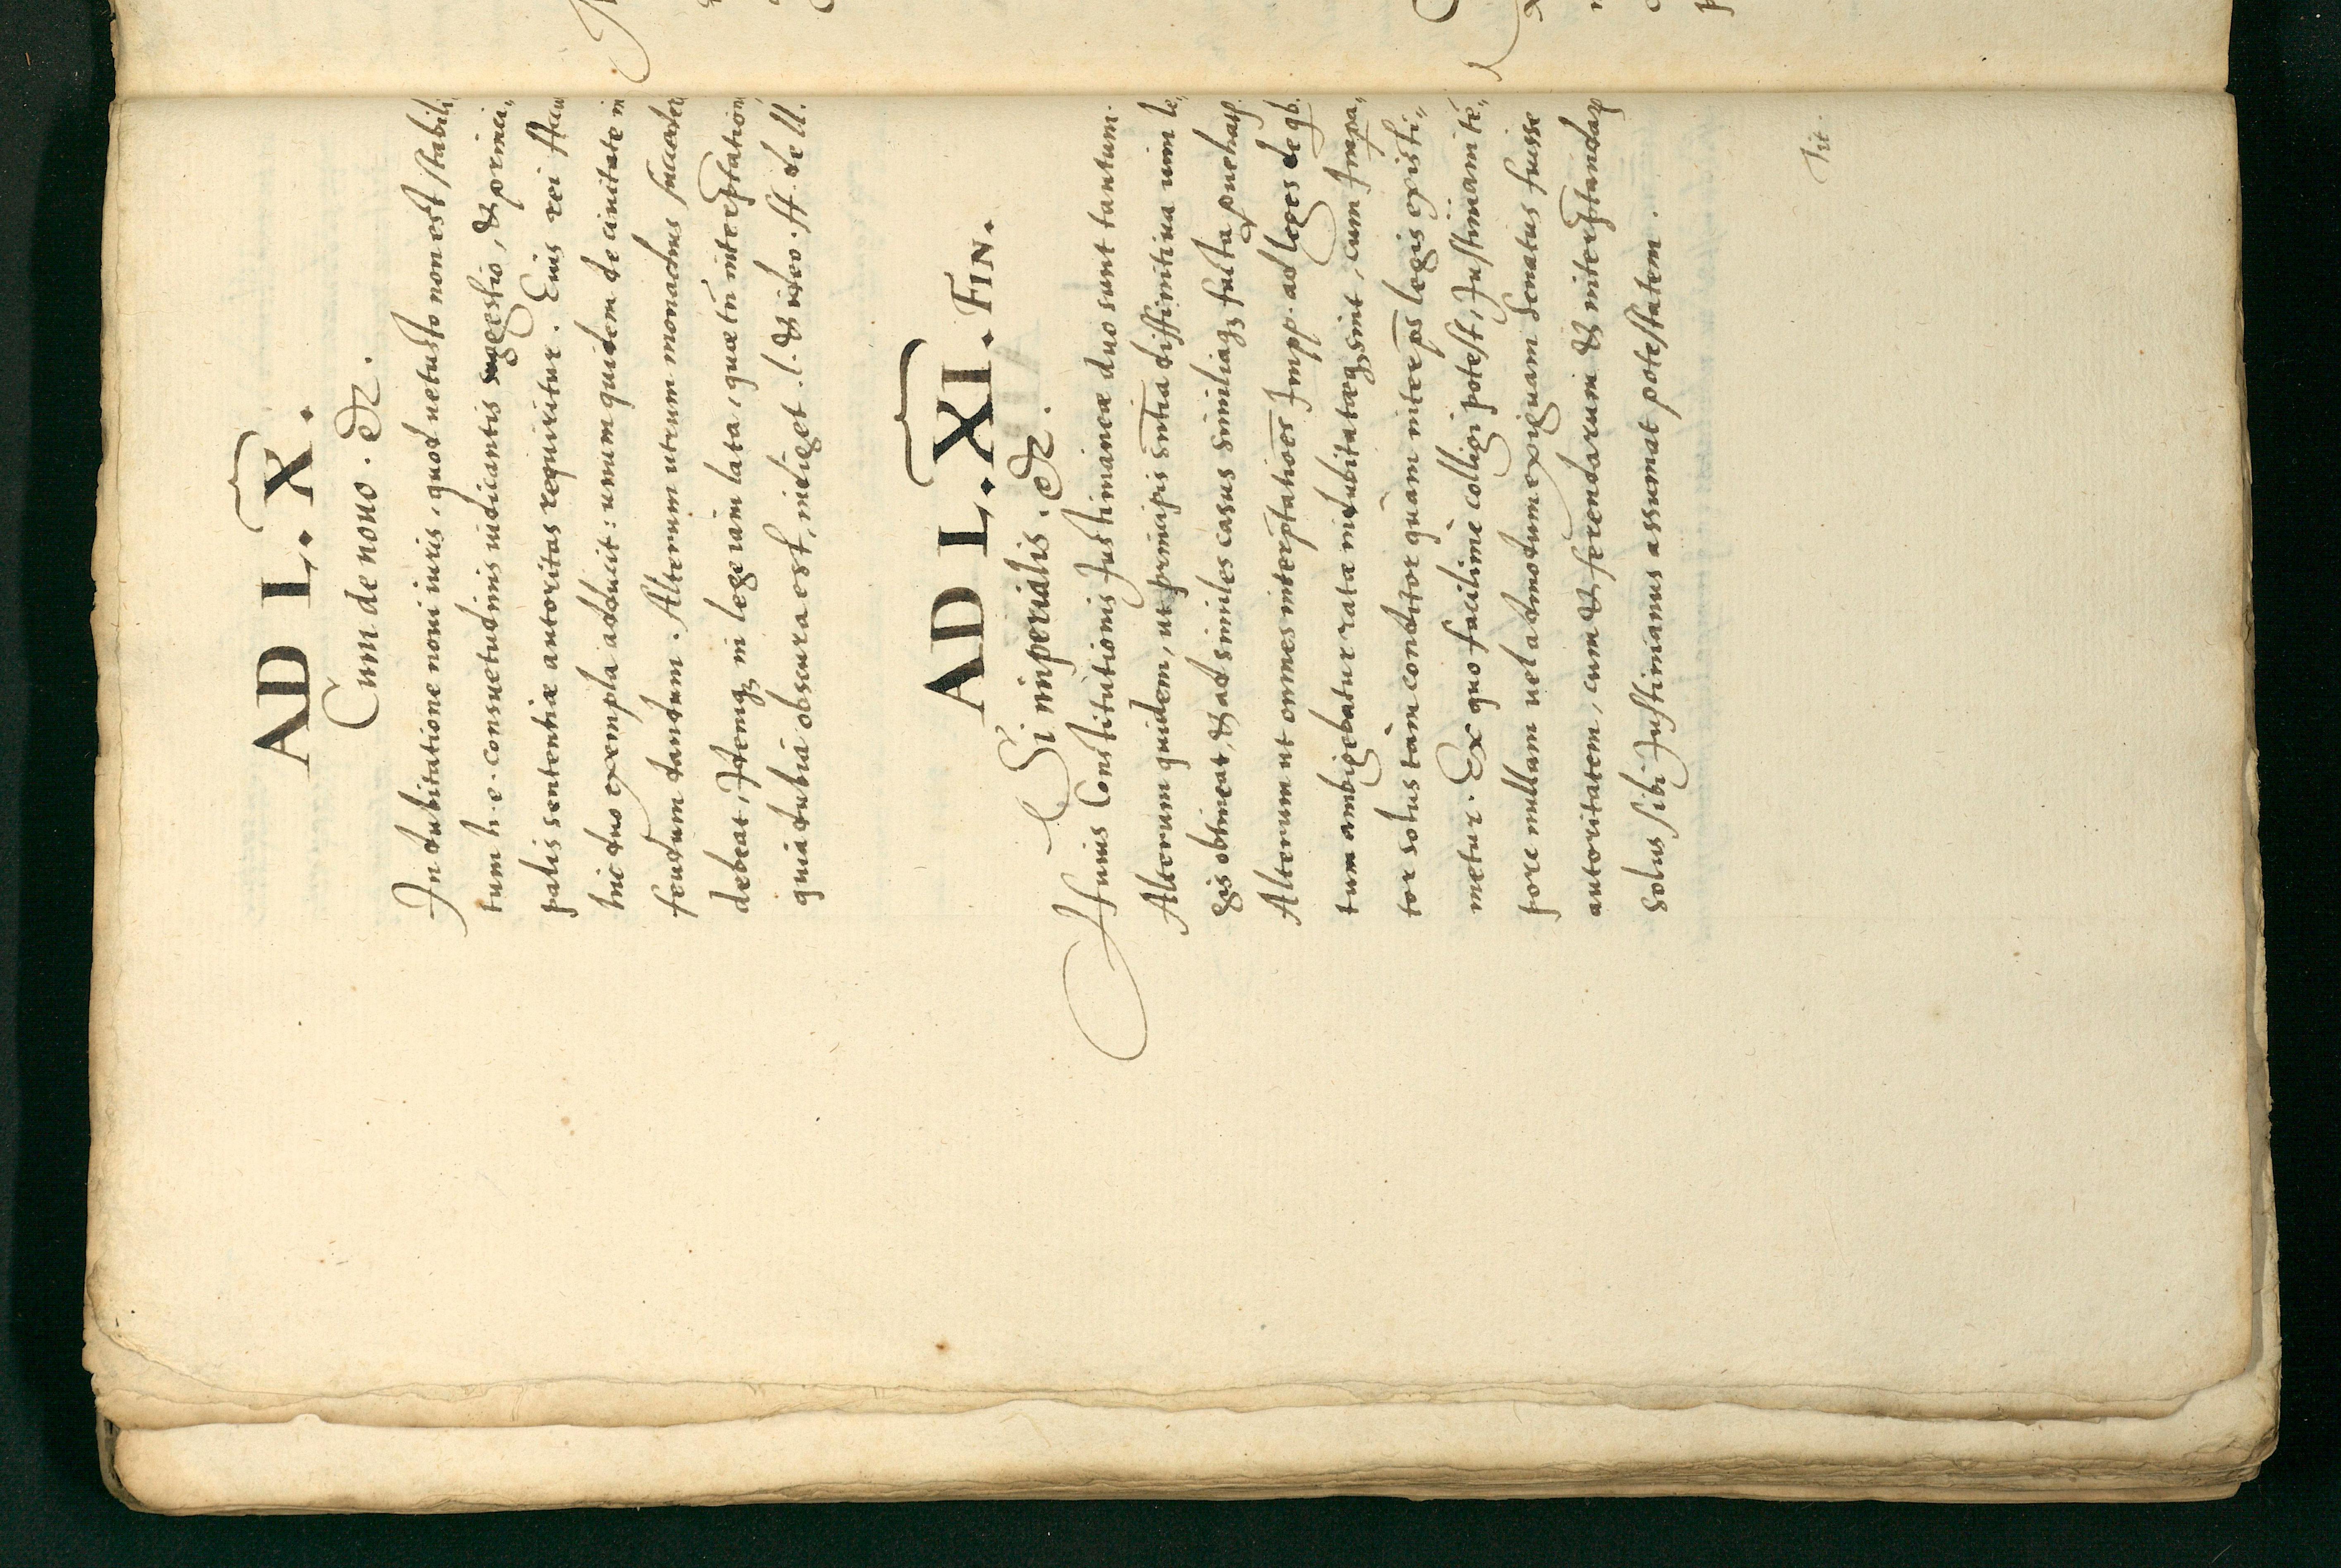 AD L. X.
Cum de nouo. &c.
In dubitatione noui iuris, quod uetusto non est stabili
tum h. e. consuetudinis iudicantis suggestio, & princi„
palis sententiæ autoritas requiritur. Eius rei Accur
hic duo exempla adducit: unum quidem de ciuitate in
feudum dandum. Alterum utrum monachus succedere
debeat, Itemq; in lege iam lata, quæ tn̄ interp̄tation
quia dubia obscura est, indiget. l. & ideo. ff. de ll.
AD L. XI. FIN.
Si imperialis. &c.
Huius Constitutionis Justinianeæ duo sunt tantum.
Alterum quidem, ut principis sn̄tia diffinitiua uim le„
gis obtineat, & ad similes casus similiaq; facta
Alterum ut omnes interp̄tatioēs Impp. ad leges de qb.
tum ambigebatur ratæ indubitatæq; sint, cum Impa„
tor solus tàm conditor quàm interp̄s legis existi„
metur. Ex quo facilimè colligi potest, Justiniani tē„
pore nullam uel admodum exiguam Senatus fuisse
autoritatem, cum & ferendarum & interp̄tandaꝝ
solus sibi Justinianus assumat potestatem.
Tit.